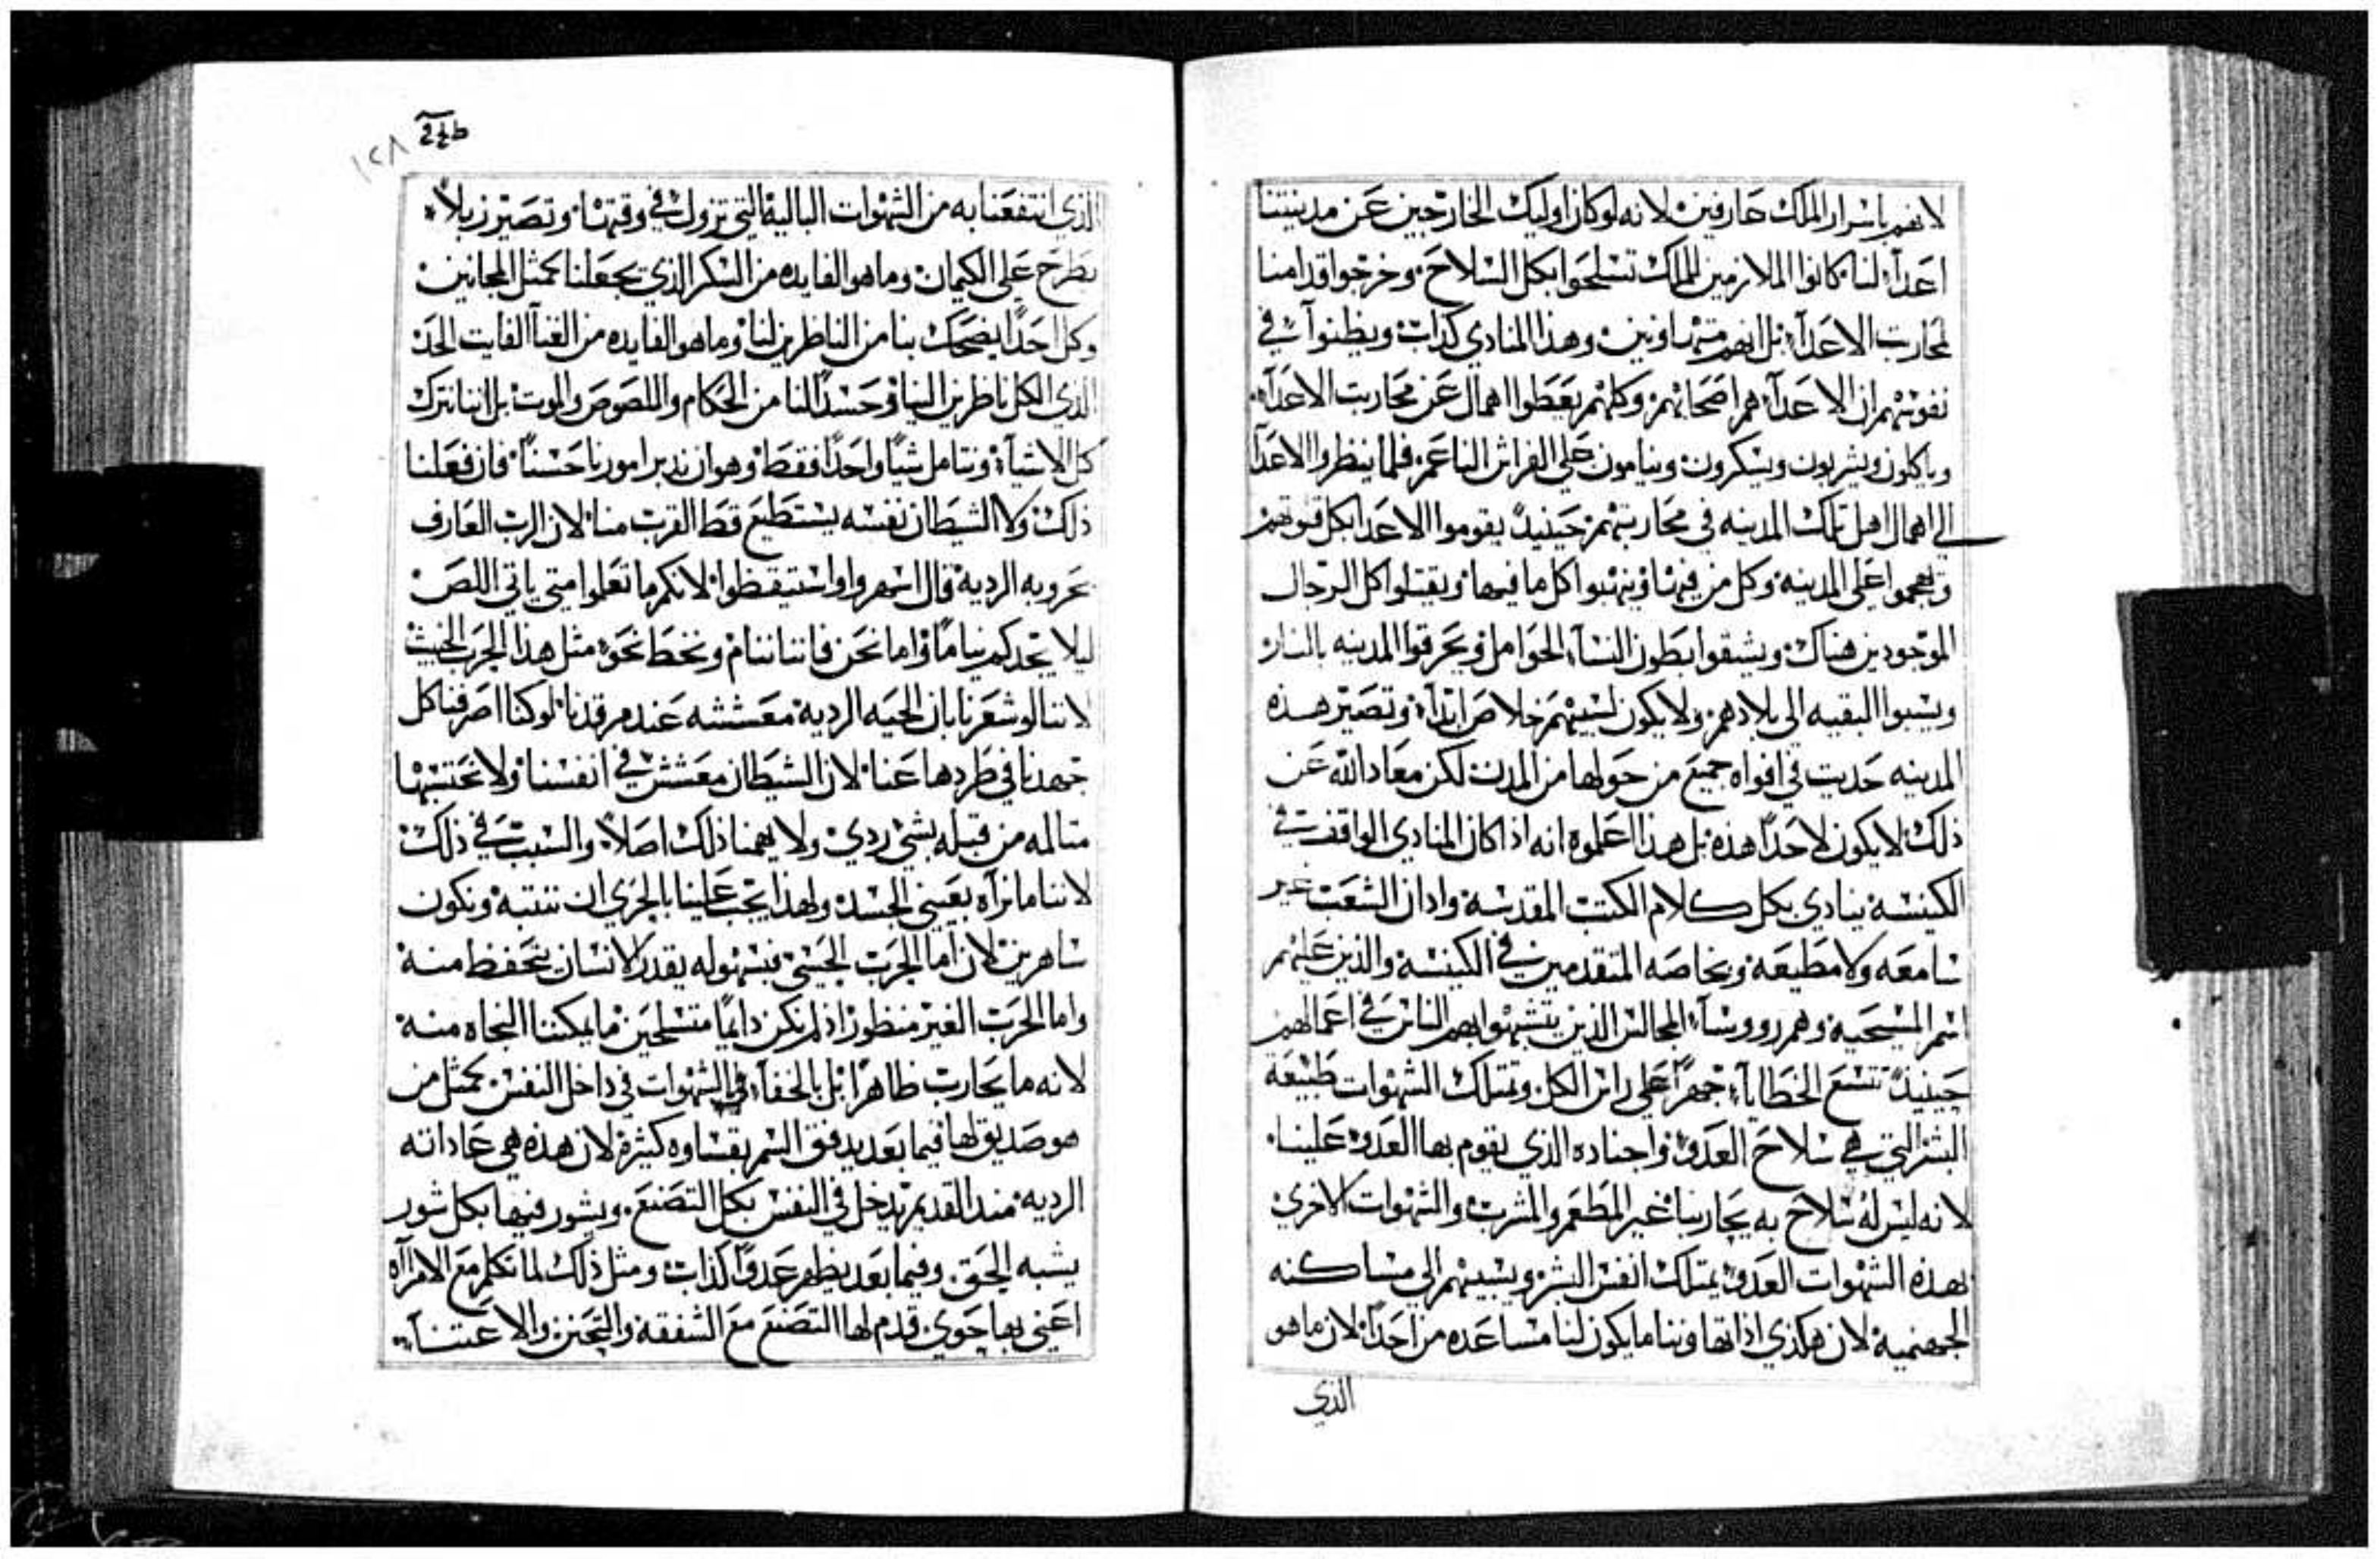 لانهم باسرار الملك عارفين لانه لو كان اوليك الخارجين عن مدينتنا
اعدآء لنا كانوا الملازمين للملك تسلحوا بكل السلاح وخرجوا قدامنا
لمحاربت الاعدآء بل انهم متهاونين وهذا المنادي كداب ويظنوا في
نفوسهم ان الاعدآء هم اصحابهم وكلهم يعطوا اهمال عن محاربت الاعدآء
وياكلون ويشربون ويسكرون وينامون علي الفراش الناعم فلما ينظروا الاعدآ
الي اهمال اهل تلك المدينه في محاربتهم حينيدٍ يقوموا الاعدا بكل قوتهم
ويهجموا علي المدينه وكل من فيها وينهبوا كل ما فيها ويقتلوا كل الرجال
الموجودين هناك ويشقوا بطون النسآء الحوامل ويحرقوا المدينه بالنار
ويسبوا البقيه الي بلادهم ولا يكون لسبيهم خلاص ابدآء وتصير هذه
المدينه حديت في افواه جميع من حولها من المدن لكن معاد الله عن
ذلك لا يكون لاحدًا هذه بل هذا اعلموه انه اذا كان المنادي الواقف في
الكنيسة ينادي بكل كلام الكتب المقدسة وادان الشعب غير
سامعه ولا مطيعه وبخاصه المتقدمين في الكنيسة والذين عليهم
اسم المسيحية وهم روسآء المجالس الذين يتشبهوا بهم الناس في اعمالهم
حينيدٍ تتسع الخطايآ جهرًا علي راس الكل وتمتلك الشهوات طبيعة
البشر التي هي سلاح العدو واجناده الذي يقوم بها العدو علينا
لانه ليس له سلاح به يحاربنا غير المطعم والمشرب والشهوات الاخري
بهذه الشهوات العدو يمتلك انفس البشر ويسبيهم الي مساكنه
الجهنمية لان هكذي اذا تهاوننا ما يكون لنا مساعده من احدًا لان ما هو
الذي
١٢٨
الذي انتفعنا به من الشهوات البالية التي تزول في وقتها وتصير زبلاً
يطرح علي الكيمان وما هو الفايده من السكر الذي يجعلنا كمثل المجانين
وكل احدًا يضحك بنا من الناظرين لنا وما هو الفايده من الغنآ الفايت الحد
الذي الكل ناظرين الينا وحسدًا لنا من الحكام واللصوص والموت بل اننا نترك
كل الاشيآء ونتامل شيًا واحدًا فقط وهو ان ندبر امورنا حسنًا فان فعلنا
ذلك ولا الشيطان نفسه يستطيع قط القرب منا لان الرب العارف
بحروبه الردية قال اسهروا واستيقظوا لانكم ما تعلموا متي ياتي اللص
ليلا يجدكم نيامًا واما نحن فاننا ننام ونخط نحوه مثل هذا الحرب الخبيث
لاننا لو شعرنا بان الحيه الردية معششه عند مرقدنا لوكنا اصرفنا كل
جهدنا في طردها عنا لان الشيطان معشش في انفسنا ولا نحتسبها
متالمه من قبله بشي ردي ولا يهمنا ذلك اصلاً والسبب في ذلك
لاننا ما نراه بعيني الجسد ولهذا يجب علينا بالحري ان ننتبه ونكون
ساهرين لان اما الحرب الحسي بسهوله يقدر الانسان يتحفظ منه
واما الحرب الغير منظور اذ لم نكن دايمًا متسلحين ما يمكننا النجاه منه
لانه ما يحارب ظاهرًا بل بالخفآء في الشهوات في داخل النفس كمثل من
هو صديق لها فيما بعد يدفق السم بقساوه كثيرة لان هذه هي عاداته
الردية مند القديم يدخل في النفس بكل التصنع ويشور فيها بكل شور
يشبه الحق وفيما بعد يظهر عدوًا كذاب ومثل ذلك لما تكلم مع الامرآه
اعني بها حوي قدم لها التصنع مع الشفقه والتحنن والاعتنآ